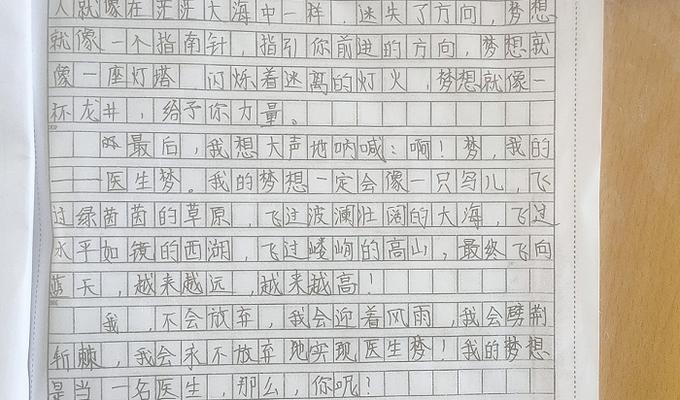 人就像在茫茫大海中一样，迷失了方向，梦想
就像一个指南针，指引你前进的方向，梦想就
像一座灯塔，闪烁着迷离的灯火，梦想就像一
杯龙井，给予你力量。
最后，我想大声地呐喊：啊！梦，我的
——医生梦。我的梦想一定会像一只鸟儿，飞
过绿茵茵的草原，飞过波澜壮阔的大海，飞过
水平如镜的西湖，飞过嶙峋的高山，最终飞向
蓝天，越来越远，越来越高！
我，不会放弃，我会迎着风雨，我会劈荆
斩棘，我会永不放弃地实现医生梦！我的梦想
是当一名医生，那么，你呢？